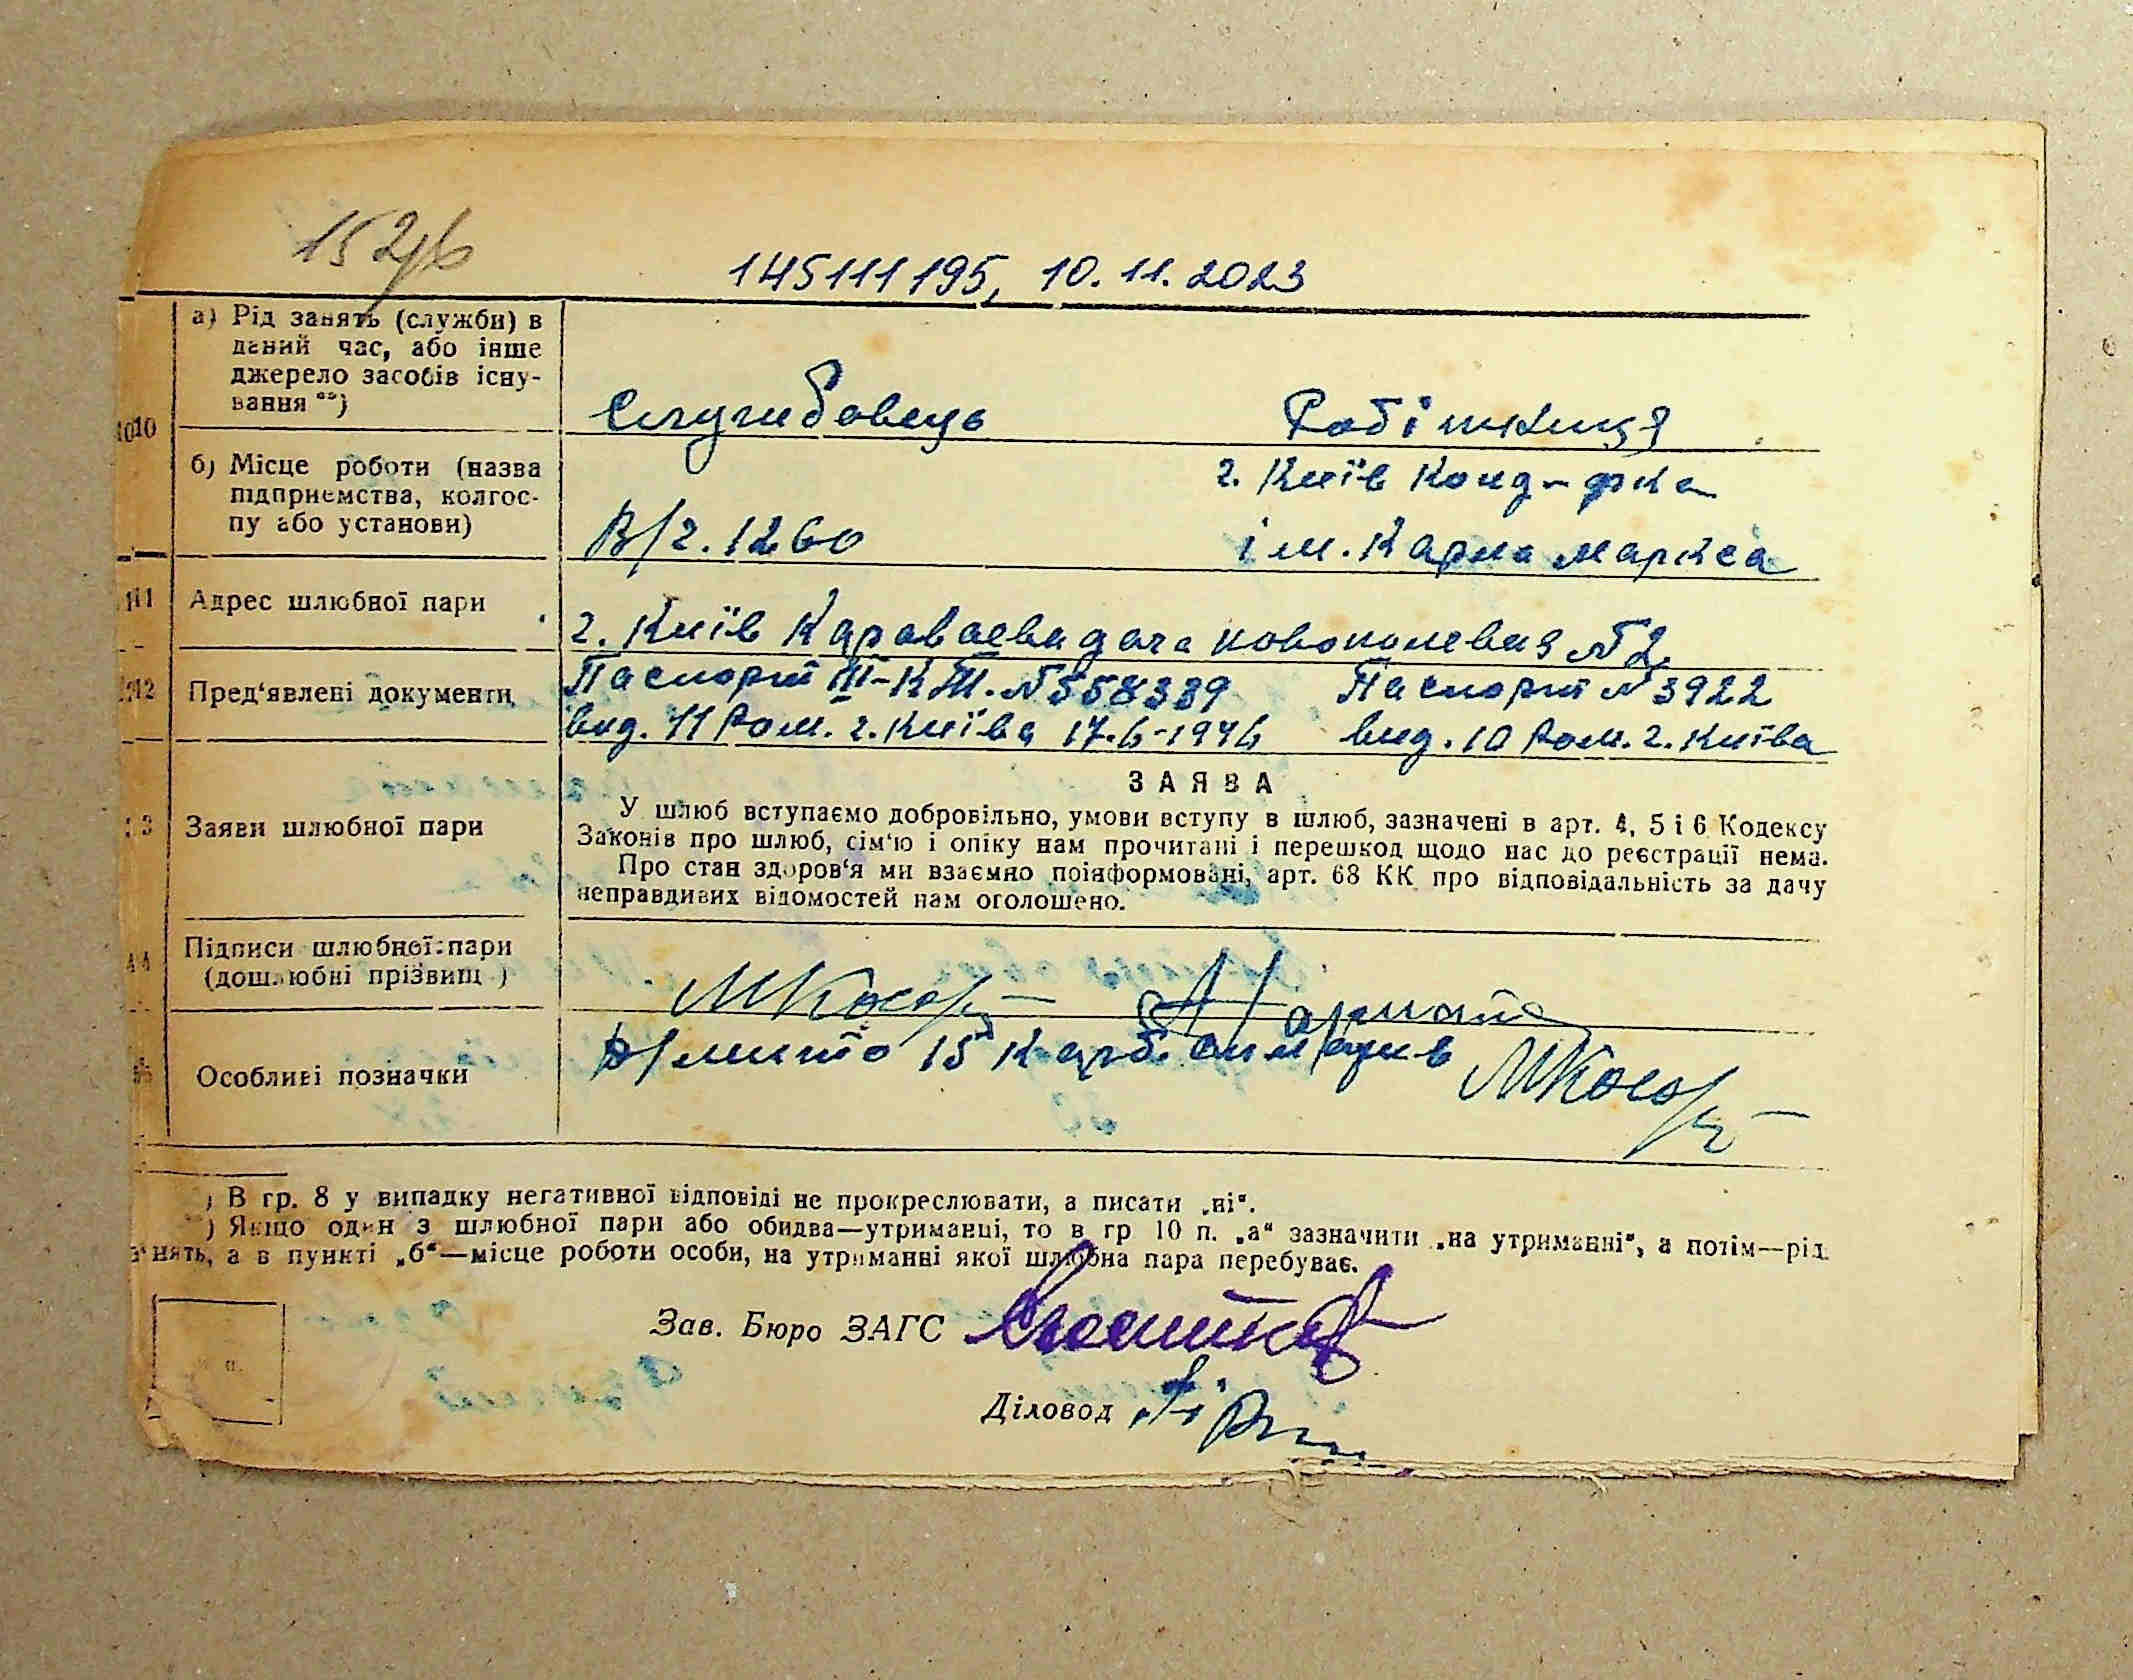 145111195, 10.11.2023
10
а) Рід занять (служби) в
даний час, або інше
джерело засобів існу-
вання **)
Службовець Робітниця
б) Місце роботи (назва
підприємства, колгос-
пу або установи)
г. Київ Конд-фка
В/г. 1260 ім. Карла Маркса
11 Адрес шлюбної пари
г. Київ Караваевидача новополевая №2
12 Пред'явлені документи
Паспорт III-КТ. №558339 Паспорт № 3922
вид. 11 Ром. г. Київа 17.6-1946 вид. 10 Ром. г. Київа
ЗАЯВА
13 Заяви шлюбної пари
У шлюб вступаємо добровільно, умови вступу в шлюб, зазначені в арт. 4, 5 і 6 Кодексу
Законів про шлюб, сім'ю і опіку нам прочитані і перешкод щодо нас до реєстрації нема.
Про стан здоров'я ми взаємно поінформовані, арт. 68 КК про відповідальність за дачу
неправдивих відомостей нам оголошено.
Підписи шлюбної пари
(дошлюбні прізвищ )
Особливі позначки
мито 15 карб.
) В гр. 8 у випадку негативної відповіді не прокреслювати, а писати „ні“.
) Якщо один з шлюбної пари або обидва—утриманці, то в гр 10 п. „а“ зазначити „на утриманні“, а потім—рід
занять, а в пункті „б“—місце роботи особи, на утриманні якої шлюбна пара перебуває.
Зав. Бюро ЗАГС
Діловод